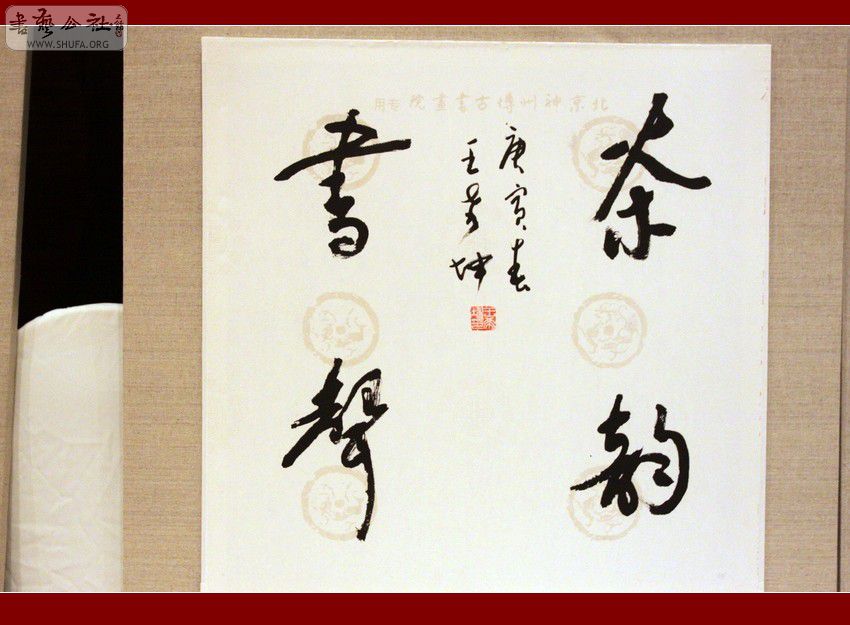 書藝公社
WWW.SHUFA.ORG
北京神州博古書畫院专用
茶韵
書聲
庚寅春
王 坤